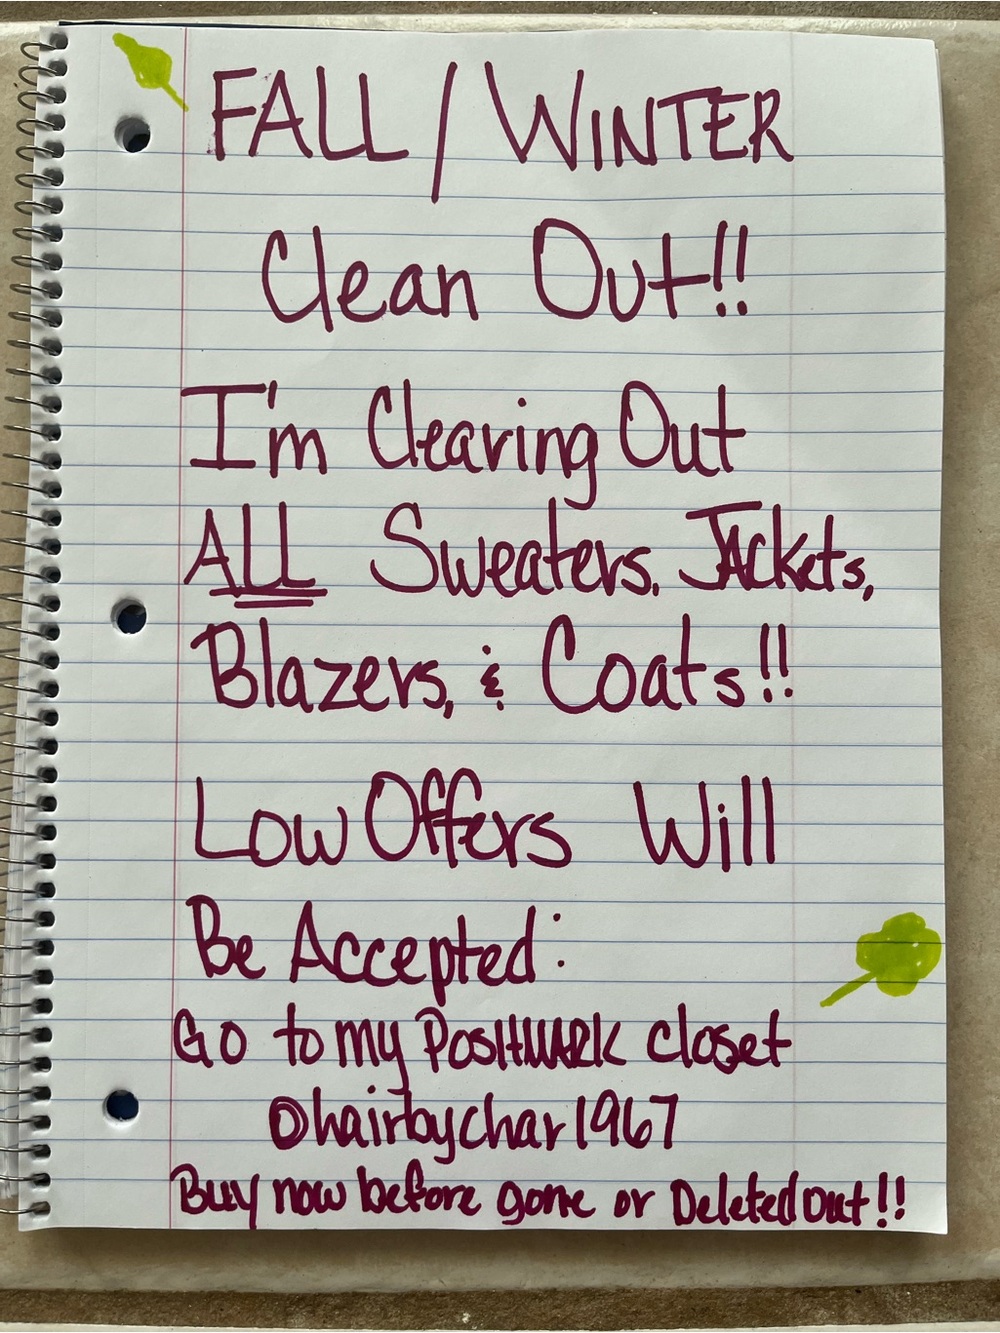 FALL / WINTER
Clean Out!!
I'm Clearing Out
ALL Sweaters, Jackets,
Blazers, & Coats!!
Low Offers Will
Be Accepted:
Go to my POSHMARK closet
@hairbychar1967
Buy now before gone or Deleted out!!